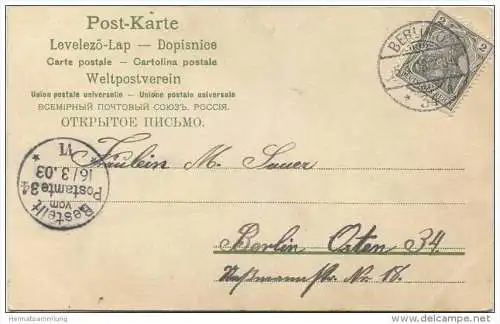 Post-Karte
Levelező-Lap — Dopisnice
Carte postale — Cartolina postale
Weltpostverein
Union postale universelle — Unione postale universale
ВСЕМІРНЫЙ ПОЧТОВЫЙ СОЮЗЪ. РОССІЯ.
ОТКРЫТОЕ ПИСЬМО.
BERLIN
2 2
Bestellt
vom
Postamte 34
16/3.03
VI
Fräulein M. Sauer
Berlin Osten 34.
Str. No. 18.
Heimatsammlung
delcampe.net